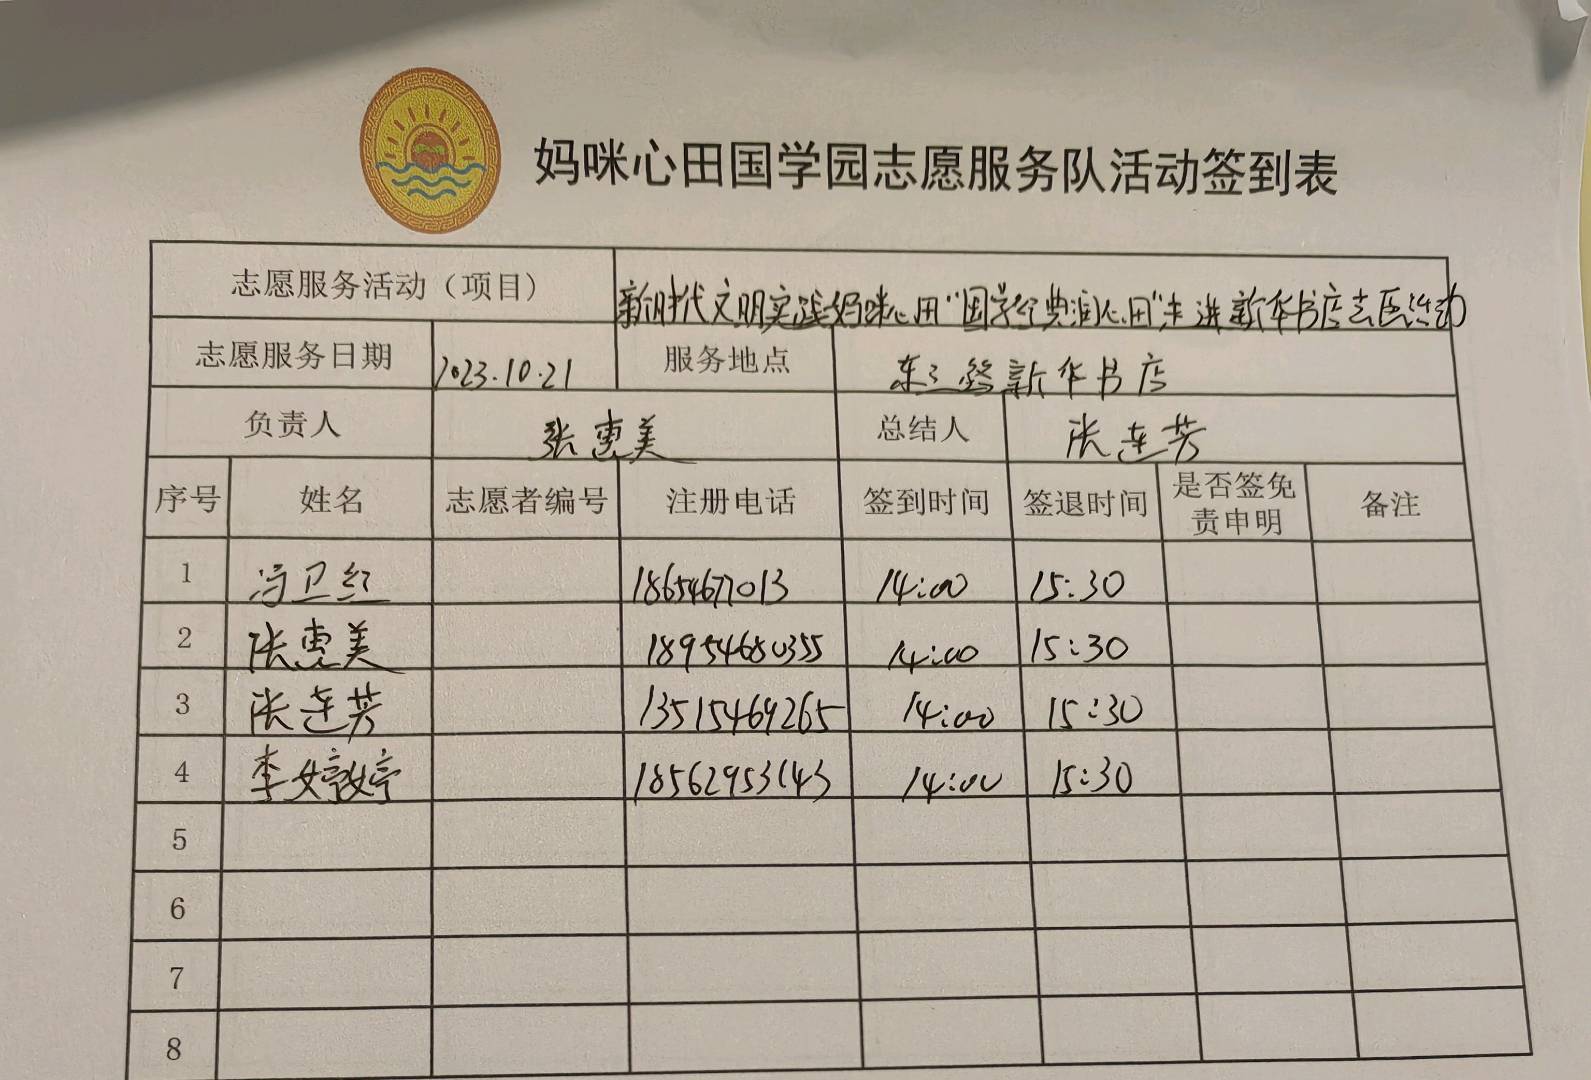 妈咪心田国学园志愿服务队活动签到表
志愿服务活动（项目） 新时代文明实践妈咪心田“国学经典润心田”走进新华书店志愿活动
志愿服务日期 2023.10.21 服务地点 东三路新华书店
负责人 张惠美 总结人 张连芳
序号 姓名 志愿者编号 注册电话 签到时间 签退时间 是否签免责申明 备注
1 冯卫红 18654677013 14:00 15:30
2 张惠美 18954680355 14:00 15:30
3 张连芳 13515469265 14:00 15:30
4 李婷婷 18562953143 14:00 15:30
5
6
7
8